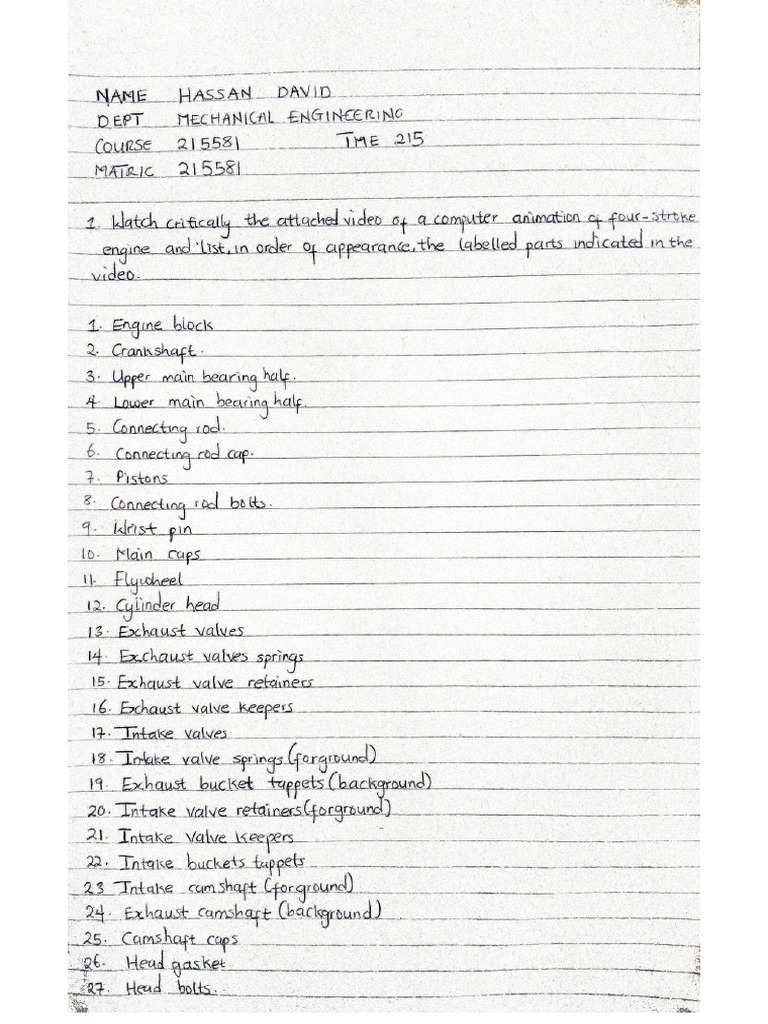 NAME HASSAN DAVID
DEPT MECHANICAL ENGINEERING
COURSE 215581 TME 215
MATRIC 215581
1. Watch critically the attached video of a computer animation of four-stroke
engine and list, in order of appearance, the labelled parts indicated in the
video.
1. Engine block
2. Crankshaft.
3. Upper main bearing half.
4. Lower main bearing half.
5. Connecting rod.
6. Connecting rod cap.
7. Pistons
8. Connecting rod bolts.
9. Wrist pin
10. Main caps
11. Flywheel
12. Cylinder head
13. Exhaust valves
14. Exchaust valves springs
15. Exhaust valve retainers
16. Exhaust valve keepers
17. Intake valves
18. Intake valve springs (forground)
19. Exhaust bucket tappets (background)
20. Intake valve retainers (forground)
21. Intake valve keepers
22. Intake buckets tappets
23 Intake camshaft (forground)
24. Exhaust camshaft (background)
25. Camshaft caps
26. Head gasket
27. Head bolts.